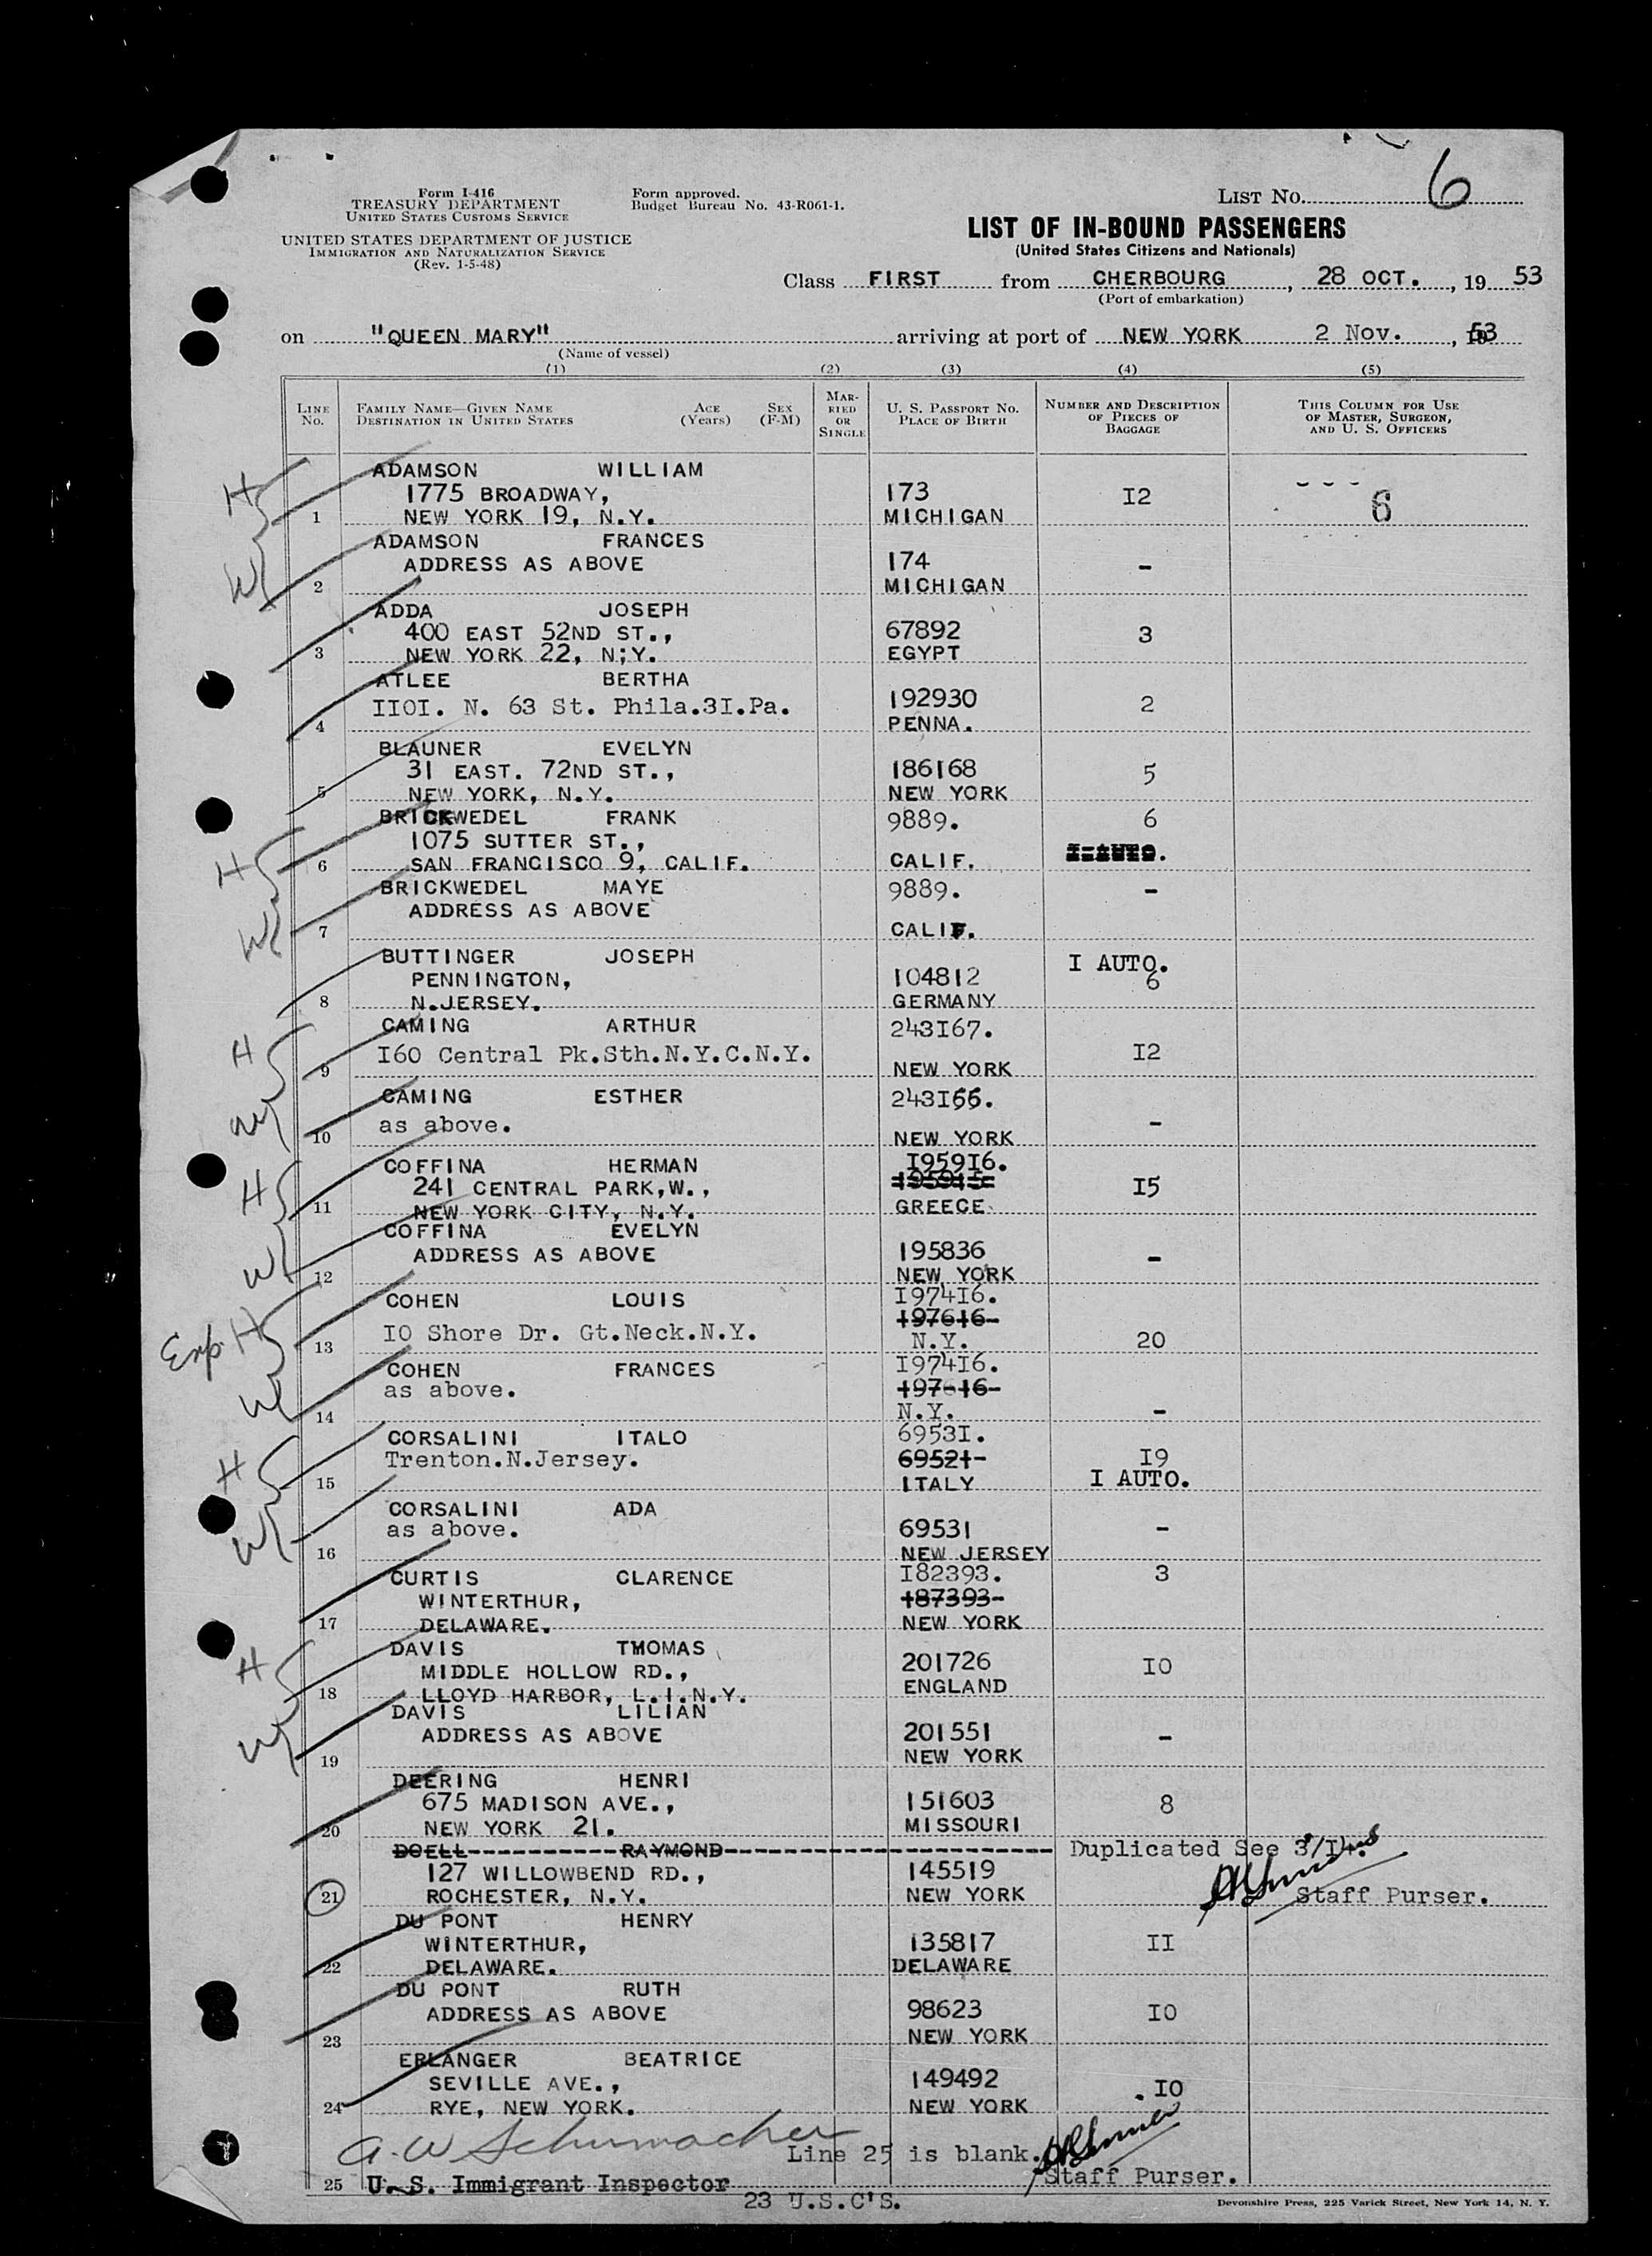 Form I-416
TREASURY DEPARTMENT
UNITED STATES CUSTOMS SERVICE
UNITED STATES DEPARTMENT OF JUSTICE
IMMIGRATION AND NATURALIZATION SERVICE
(Rev. 1-5-48)
Form approved.
Budget Bureau No. 43-R061-1.
LIST NO. 6
LIST OF IN-BOUND PASSENGERS
(United States Citizens and Nationals)
Class FIRST from CHERBOURG, 28 OCT., 19 53
(Port of embarkation)
on "QUEEN MARY" arriving at port of NEW YORK 2 Nov., 1953
(Name of vessel)
(1) (2) (3) (4) (5)
LINE NO.
FAMILY NAME—GIVEN NAME
DESTINATION IN UNITED STATES
AGE (Years)
SEX (F-M)
MARRIED OR SINGLE
U. S. PASSPORT NO.
PLACE OF BIRTH
NUMBER AND DESCRIPTION OF PIECES OF BAGGAGE
THIS COLUMN FOR USE OF MASTER, SURGEON, AND U. S. OFFICERS
H
ADAMSON WILLIAM
1775 BROADWAY, 173 I2 6
1 NEW YORK 19, N.Y. MICHIGAN
W
ADAMSON FRANCES
ADDRESS AS ABOVE 174 -
2 MICHIGAN
ADDA JOSEPH
400 EAST 52ND ST., 67892 3
3 NEW YORK 22, N;Y. EGYPT
ATLEE BERTHA
IIOI. N. 63 St. Phila.3I.Pa. 192930 2
4 PENNA.
BLAUNER EVELYN
31 EAST. 72ND ST., 186168 5
5 NEW YORK, N.Y. NEW YORK
H
BRICKWEDEL FRANK 9889. 6
1075 SUTTER ST.,
6 SAN FRANCISCO 9, CALIF. CALIF. I-AUTO.
W
BRICKWEDEL MAYE 9889. -
ADDRESS AS ABOVE
7 CALIF.
BUTTINGER JOSEPH I AUTO.
PENNINGTON, 104812 6
8 N.JERSEY. GERMANY
H
CAMING ARTHUR 243I67.
I60 Central Pk.Sth.N.Y.C.N.Y. I2
9 NEW YORK
W
CAMING ESTHER 243I66.
as above. -
10 NEW YORK
H
COFFINA HERMAN I959I6.
241 CENTRAL PARK,W., 195915 I5
11 NEW YORK CITY, N.Y. GREECE
W
COFFINA EVELYN
ADDRESS AS ABOVE 195836 -
12 NEW YORK
Exp H
COHEN LOUIS I974I6.
197616
IO Shore Dr. Gt.Neck.N.Y.
13 N.Y. 20
W
COHEN FRANCES I974I6.
as above. 197616
14 N.Y. -
H
CORSALINI ITALO 6953I.
Trenton.N.Jersey. 69521 I9
15 ITALY I AUTO.
W
CORSALINI ADA
as above. 69531 -
16 NEW JERSEY
CURTIS CLARENCE I82393. 3
WINTERTHUR, 187393
17 DELAWARE. NEW YORK
H
DAVIS THOMAS
MIDDLE HOLLOW RD., 201726 IO
18 LLOYD HARBOR, L.I.N.Y. ENGLAND
W
DAVIS LILIAN
ADDRESS AS ABOVE 201551 -
19 NEW YORK
DEERING HENRI
675 MADISON AVE., 151603 8
20 NEW YORK 21. MISSOURI
DOELL RAYMOND Duplicated See 3/I4.
127 WILLOWBEND RD., 145519
21 ROCHESTER, N.Y. NEW YORK Staff Purser.
DU PONT HENRY
WINTERTHUR, 135817 II
22 DELAWARE. DELAWARE
DU PONT RUTH
ADDRESS AS ABOVE 98623 IO
23 NEW YORK
ERLANGER BEATRICE
SEVILLE AVE., 149492 .IO
24 RYE, NEW YORK. NEW YORK
A. W Schumacher Line 25 is blank.
25 U.S. Immigrant Inspector Staff Purser.
23 U.S.C'S.
Devonshire Press, 225 Varick Street, New York 14, N. Y.